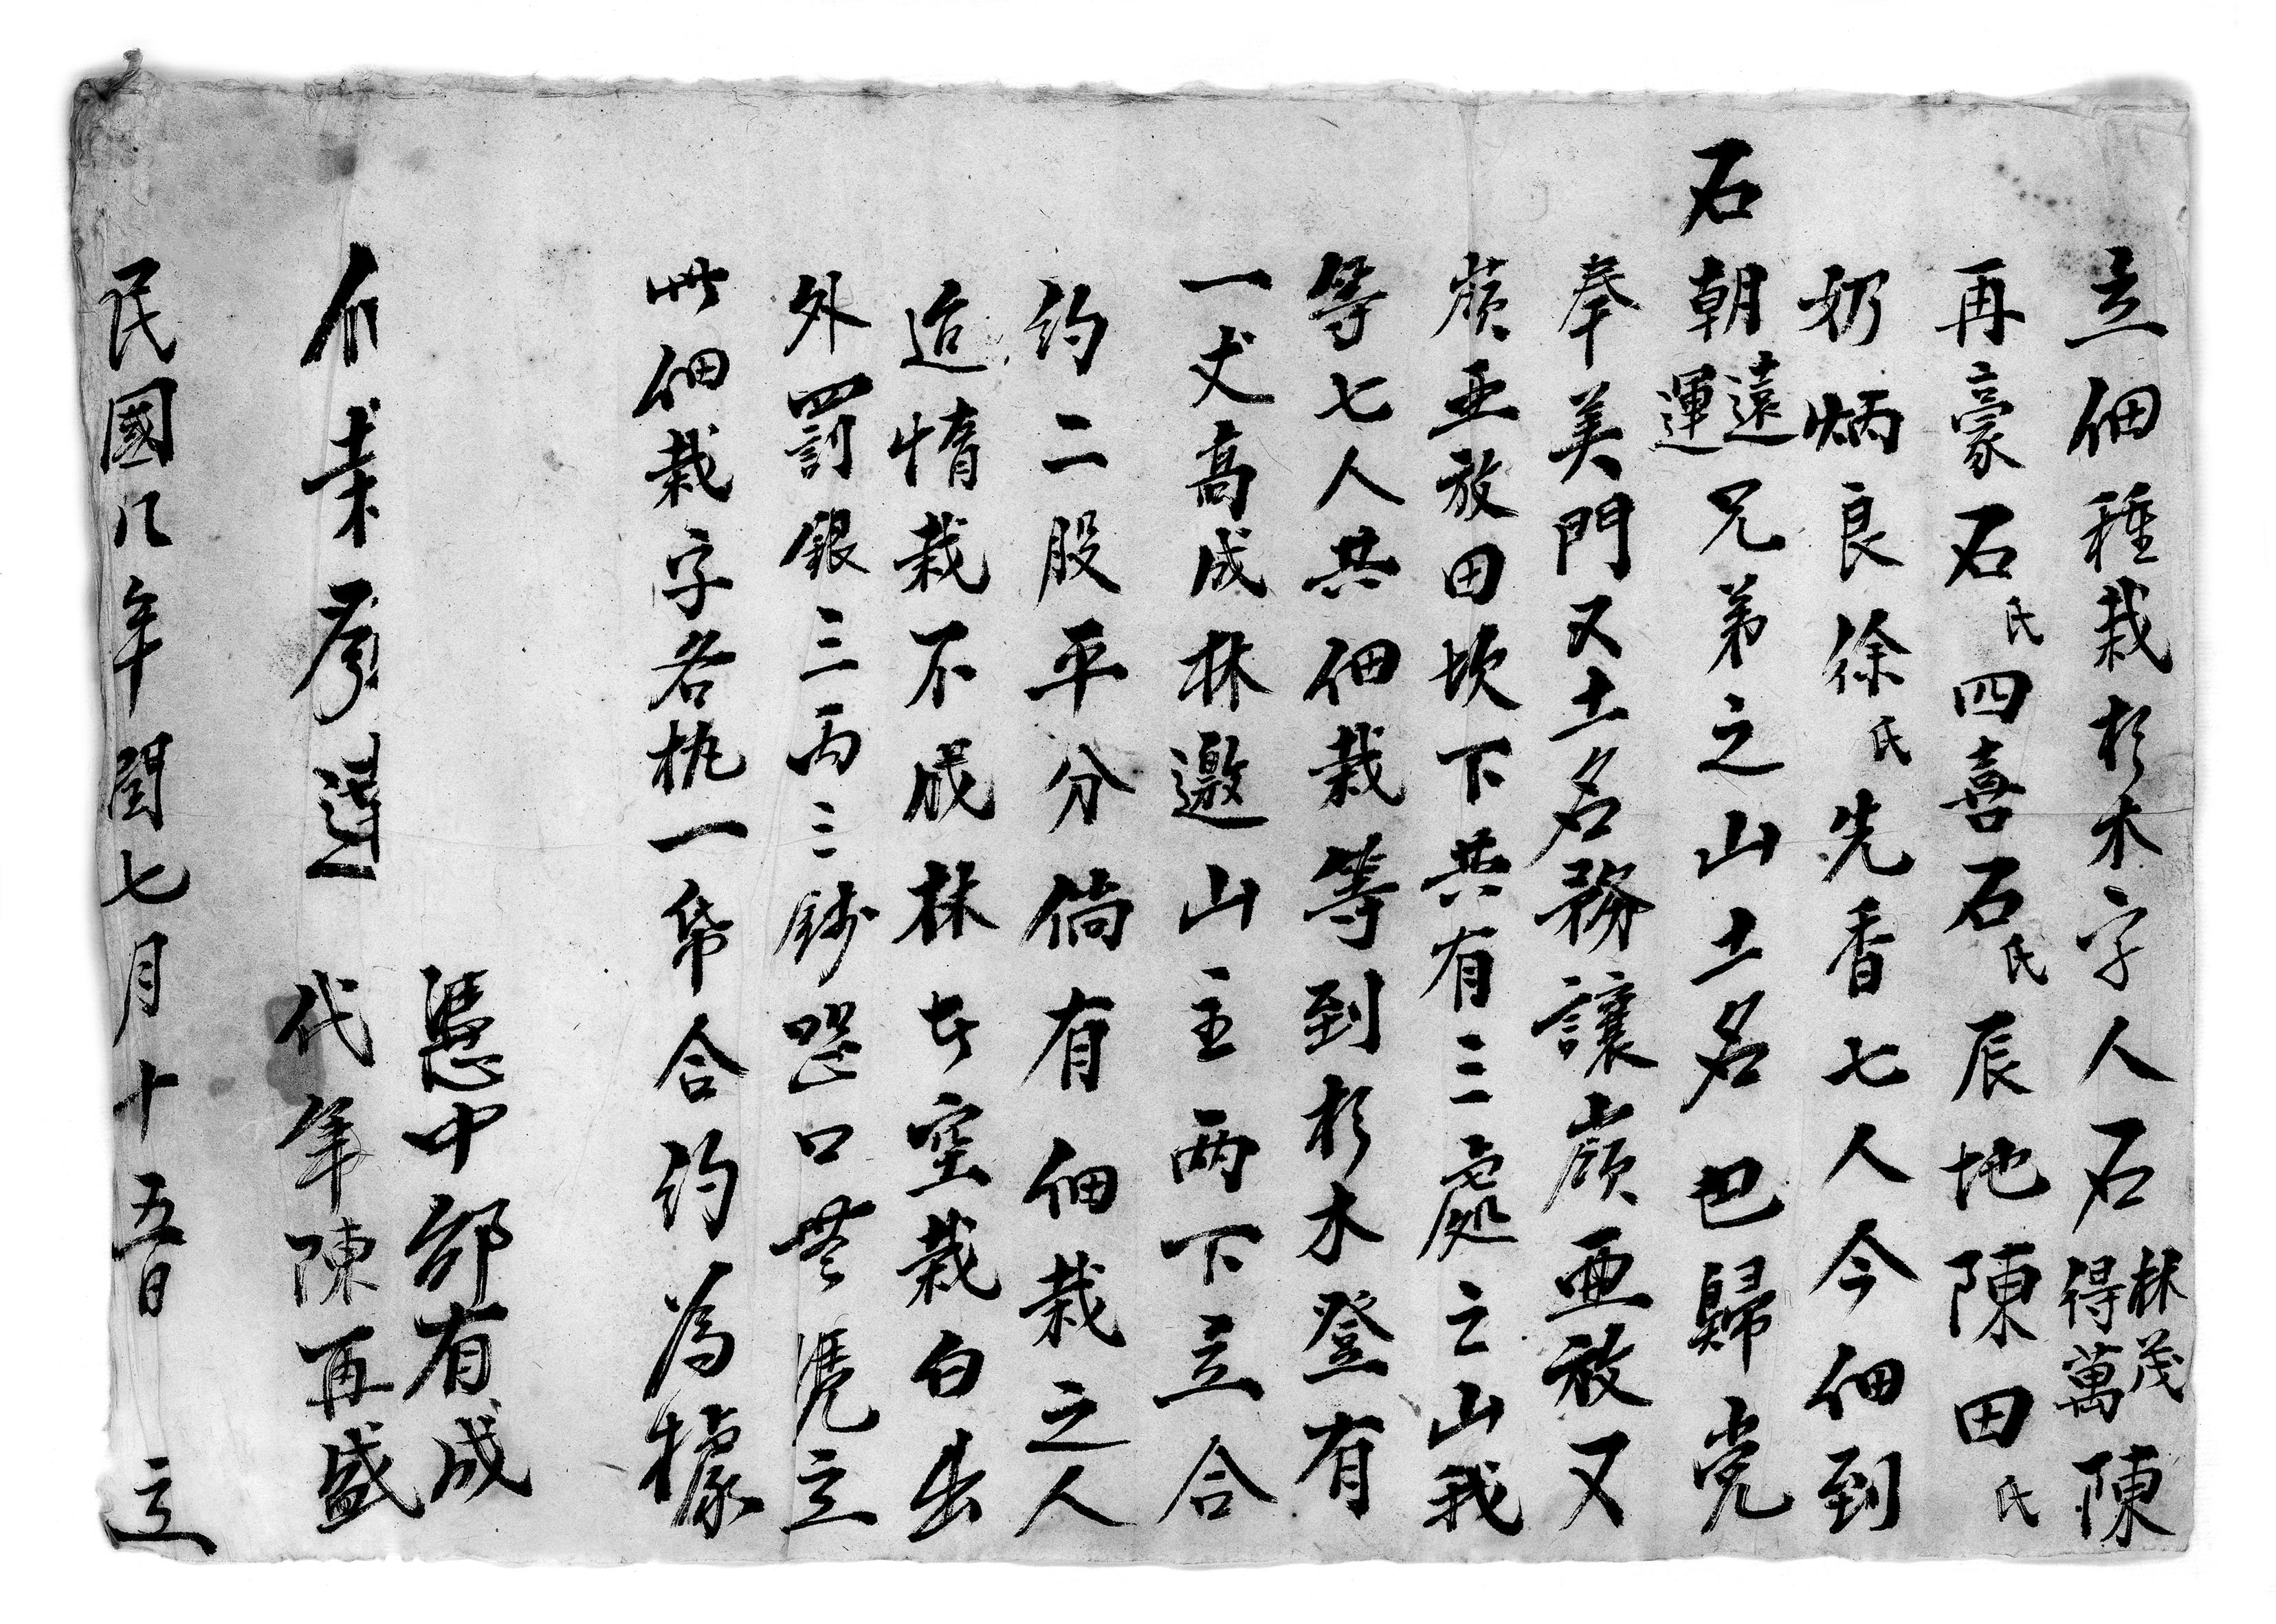 立佃種栽杉木字人石林茂得萬陳
再豪石氏四喜石氏辰地陳田氏
奶炳良徐氏先香七人今佃到
石朝遠運兄弟之山土名巴歸党
奉美門又土名務讓嶺亜放又
嶺亜放田坎下共有三處之山我
等七人共佃栽等到杉木登有
一丈高成林邀山主兩下立合
約二股平分倘有佃栽之人
迨惰栽不成林官空栽白出
外罰銀三両三錢空口無憑立
此佃栽字各执一帋合約為據
憑中邰有成
代筆陳再盛
民國八年閏七月十五日 立